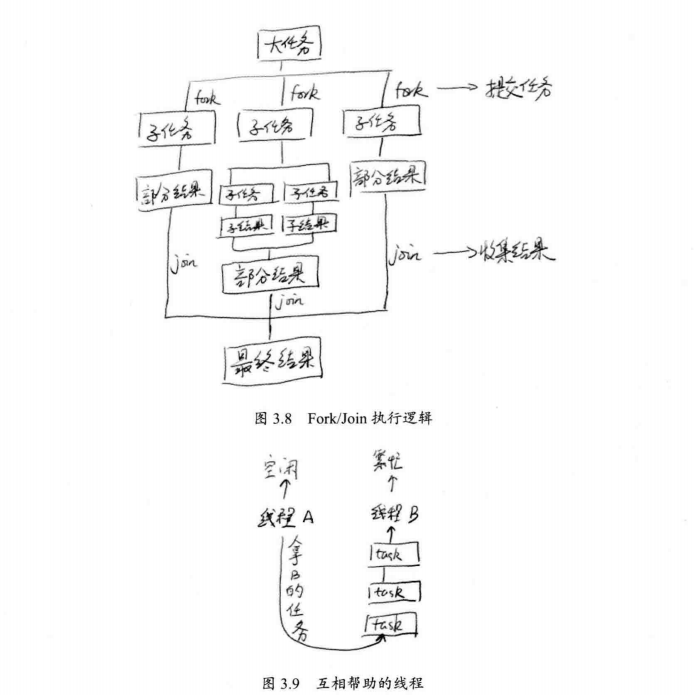 大任务
fork fork fork → 提交任务
子任务 子任务 子任务
部分结果 子任务 子任务 部分结果
子结果 子结果
join 部分结果 join → 收集结果
join
最终结果
图 3.8 Fork/Join 执行逻辑
空闲 繁忙
线程 A 线程 B
拿B的任务
task
task
task
图 3.9 互相帮助的线程